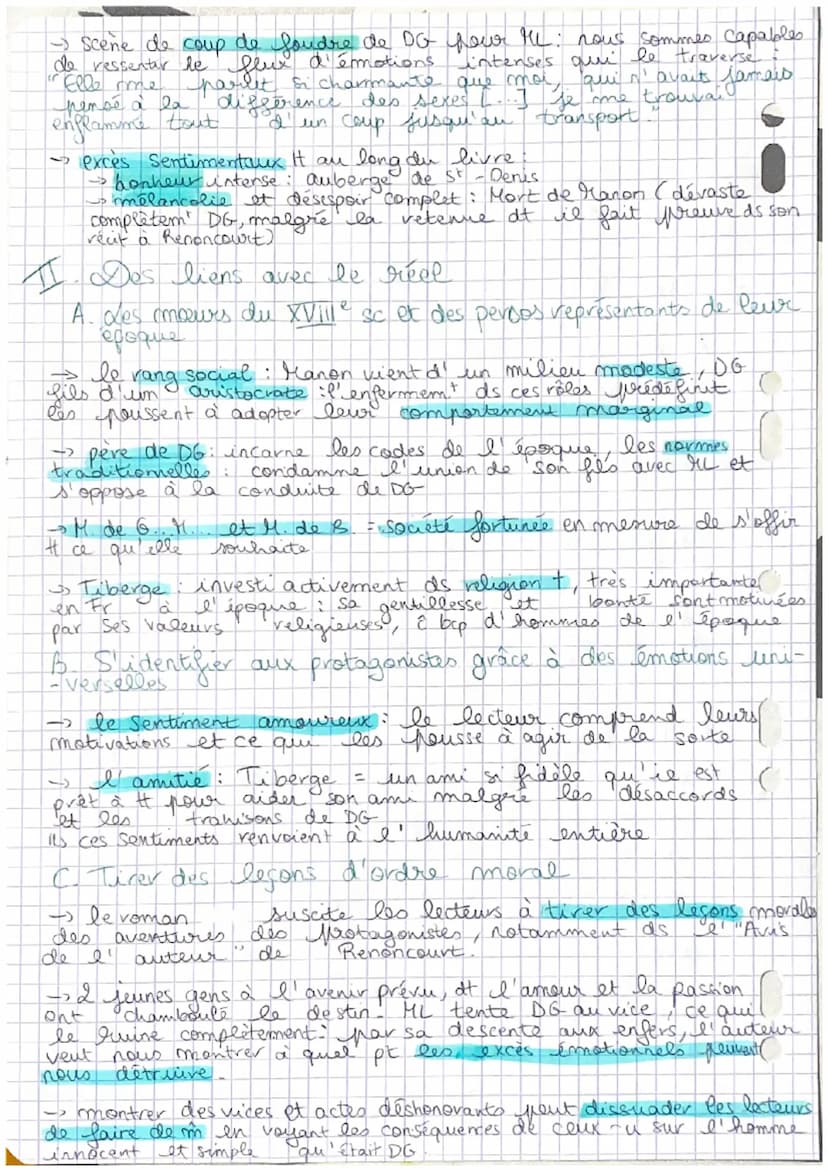 → scène de coup de foudre de DG pour ML : nous sommes capables
de ressentir le flux d'émotions intenses qui le traverse :
"Elle me parut si charmante que moi, qui n'avait jamais
pensé à la différence des sexes [...] je me trouvai
enflammé tout d'un coup jusqu'au transport."
→ excès sentimentaux tt au long du livre :
→ bonheur intense : auberge de St-Denis
→ mélancolie et désespoir complet : Mort de Manon (dévaste
complètemt DG, malgré la retenue dt il fait preuve ds son
récit à Renoncourt)
II. Des liens avec le réel
A. Les mœurs du XVIIIe sc et des persos représentants de leur
époque
→ le rang social : Manon vient d'un milieu modeste, DG
fils d'un aristocrate : l'enfermemt ds ces rôles prédéfinit
les poussent à adopter leur comportement marginal
→ père de DG : incarne les codes de l'époque, les normes
traditionnelles : condamne l'union de son fils avec ML et
s'oppose à la conduite de DG
→ M. de G... M... et M. de B. = société fortunée en mesure de s'offir
tt ce qu'elle souhaite
→ Tiberge : investi activement ds religion †, très importante
en Fr à l'époque : sa gentillesse et bonté sont motivées
par ses valeurs religieuses, c bcp d'hommes de l'époque
B. S'identifier aux protagonistes grâce à des émotions uni-
-verselles
→ le sentiment amoureux : le lecteur comprend leurs
motivations et ce qui les pousse à agir de la sorte
→ l'amitié : Tiberge = un ami si fidèle qu'il est
prêt à tt pour aider son ami malgré les désaccords
et les trahisons de DG
ces sentiments renvoient à l'humanité entière
C. Tirer des leçons d'ordre moral
→ le roman suscite les lecteurs à tirer des leçons morales
des aventures des protagonistes, notamment ds l'"Avis
de l'auteur" de Renoncourt.
→ 2 jeunes gens à l'avenir prévu, dt l'amour et la passion
ont chamboulé le destin. ML tente DG au vice, ce qui
le ruine complètement : par sa descente aux enfers, l'auteur
veut nous montrer à quel pt les excès émotionnels peuvent
nous détruire.
→ montrer des vices et actes déshonorants peut dissuader les lecteurs
de faire de m̂ en voyant les conséquences de ceux-ci sur l'homme
innocent et simple qu'était DG.